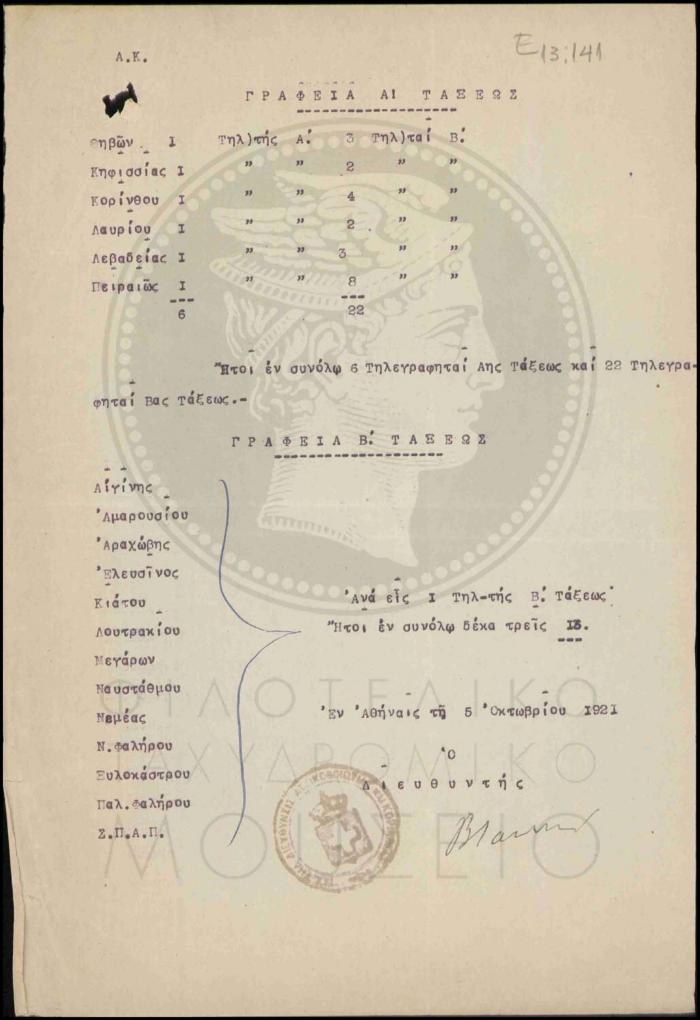 Α.Κ.
Ε13:141
ΓΡΑΦΕΙΑ Α! ΤΑΞΕΩΣ
Θηβῶν Ι Τηλ)τής Α. 3 Τηλ)ταί Β.
Κηφισσίας Ι " " 2 " "
Κορίνθου Ι " " 4 " "
Λαυρίου Ι " " 2 " "
Λεβαδείας Ι " " 3 " "
Πειραιῶς Ι " " 8 " "
6 22
Ἤτοι ἐν συνόλῳ 6 Τηλεγραφηταί Αης Τάξεως καί 22 Τηλεγρα-
φηταί Βας Τάξεως.-
ΓΡΑΦΕΙΑ Β. ΤΑΞΕΩΣ
Αἰγίνης
Ἀμαρουσίου
Ἀραχώβης
Ἐλευσῖνος
Κιάτου
Λουτρακίου
Μεγάρων
Ναυστάθμου
Νεμέας
Ν.Φαλήρου
Ξυλοκάστρου
Παλ.Φαλήρου
Σ.Π.Α.Π.
Ἀνά εἷς Ι Τηλ-τής Β. Τάξεως
Ἤτοι ἐν συνόλῳ δέκα τρεῖς Ι3.
Ἐν Ἀθήναις τῇ 5 Ὀκτωβρίου Ι92Ι
Ὁ
Διευθυντής
ΦΙΛΟΤΕΛΙΚΟ
ΤΑΧΥΔΡΟΜΙΚΟ
ΜΟΥΣΕΙΟ